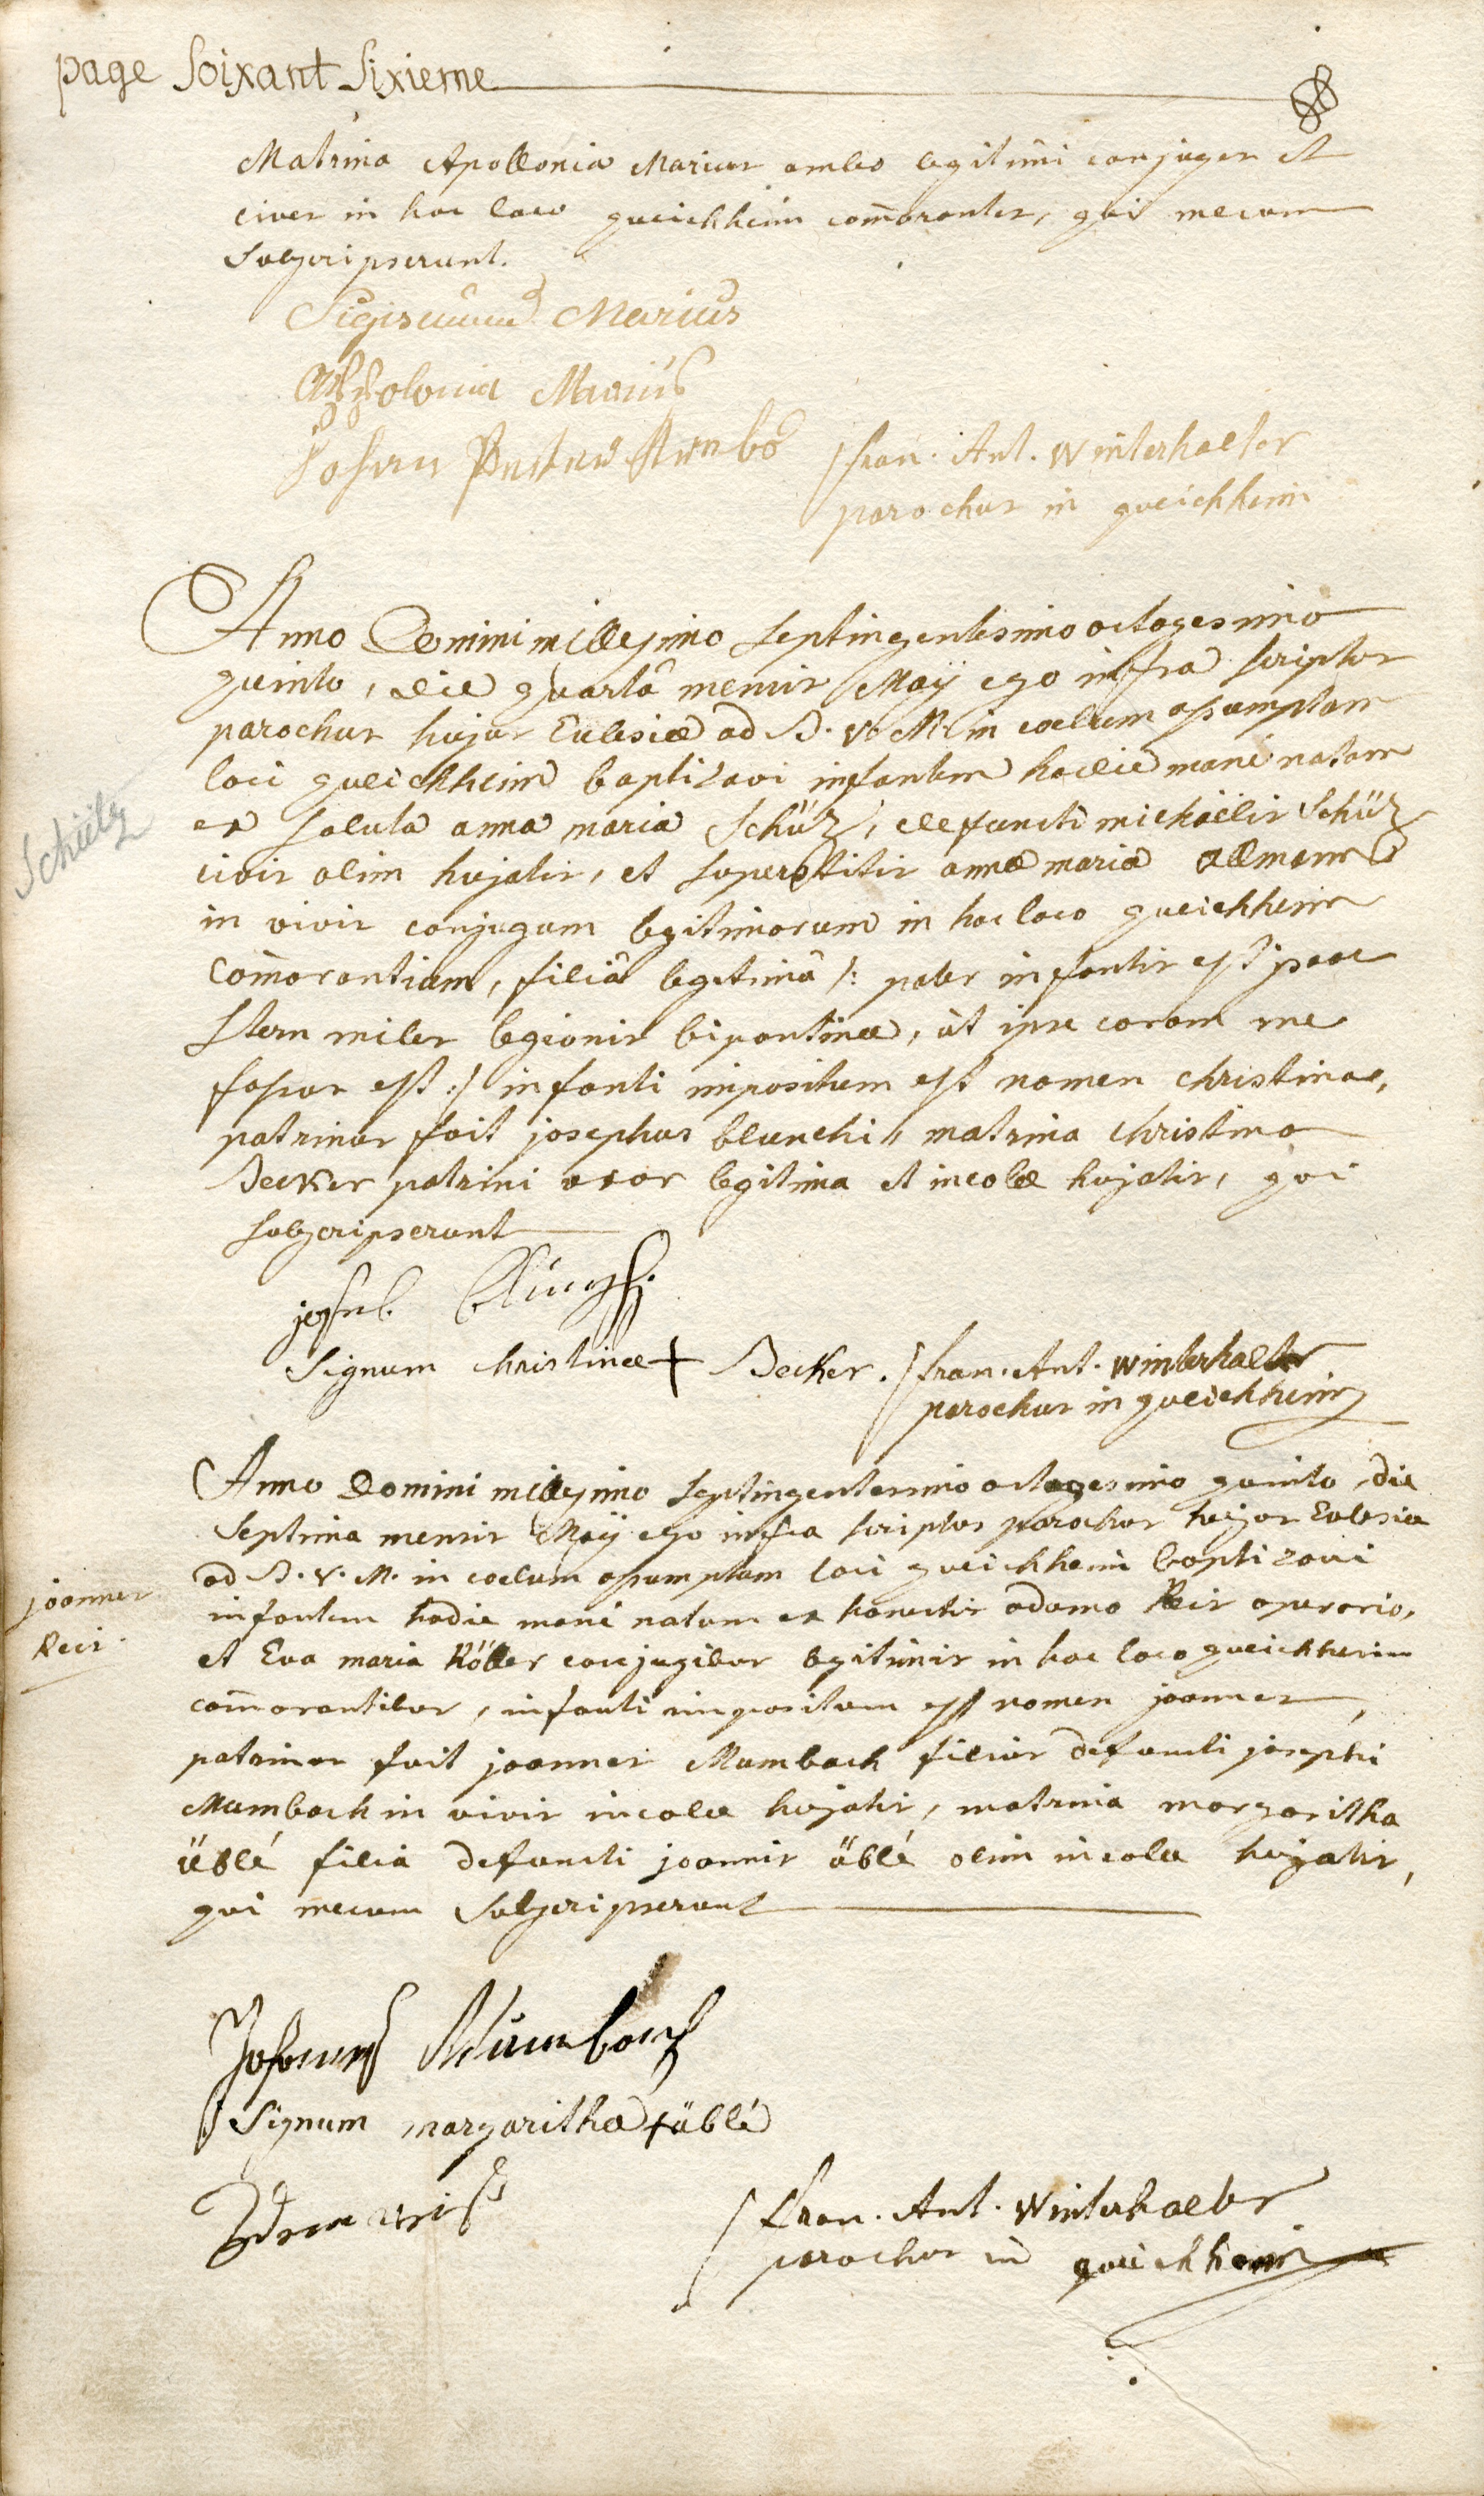 page Soixant Sixieme
Matrina Apollonia Marius ambo legitimi conjuges et
cives in hoc loco queichheim com̄orantes, qui mecum
subscripserunt.
Sigismund Marius
Appolonia Marius
Johan
fran. Ant. Winterhalter
parochus in queichheim
Anno Domini millesimo septingentesimo octogesimo
quinto, die quartâ mensis Maÿ ego infra scriptus
parochus hujus Eclesiæ ad B. V. M. in coelum assumptam
loci queichheim baptizavi infantem hodie manè natam
ex soluta anna maria Schüz, defuncti michaëlis Schüz
civis olim hujatis, et superstitis annæ mariæ allmann
in vivis conjugum legitimorum in hoc loco queichheim
com̄orantium, filiâ legitimâ /: pater infantis est
Stern miles legionis bipontinæ, ut ipse coram me
fassus est :/ infanti impositum est nomen christina,
patrinus fuit josephus blunchi, matrina christina
Becker patrini uxor legitima et incolæ hujatis, qui
subscripserunt
joseph
Signum christinæ + Becker.
fran. Ant. Winterhalter
parochus in queichheim
Schütz
Anno Domini millesimo septingentesimo octogesimo quinto, die
septima mensis Maÿ ego infra scriptus parochus hujus Eclesiæ
ad B. V. M. in coelum assumptam loci queichheim baptizavi
infantem hodie manè natum ex honestis adamo Reis operario,
et Eva maria Röller conjugibus legitimis in hoc loco queichheim
com̄orantibus, infanti impositum est nomen joannes,
patrinus fuit joannes Mumbach filius defuncti josephi
Mumbach in vivis incolæ hujatis, matrina margaritha
üblé filia defuncti joannis üblé olim incolæ hujatis,
qui mecum subscripserunt
joannes
Reis.
Johannes Mumbach
Signum margarithæ + üblé
Adam reiß
fran. Ant. Winterhalter
parochus in queichheim